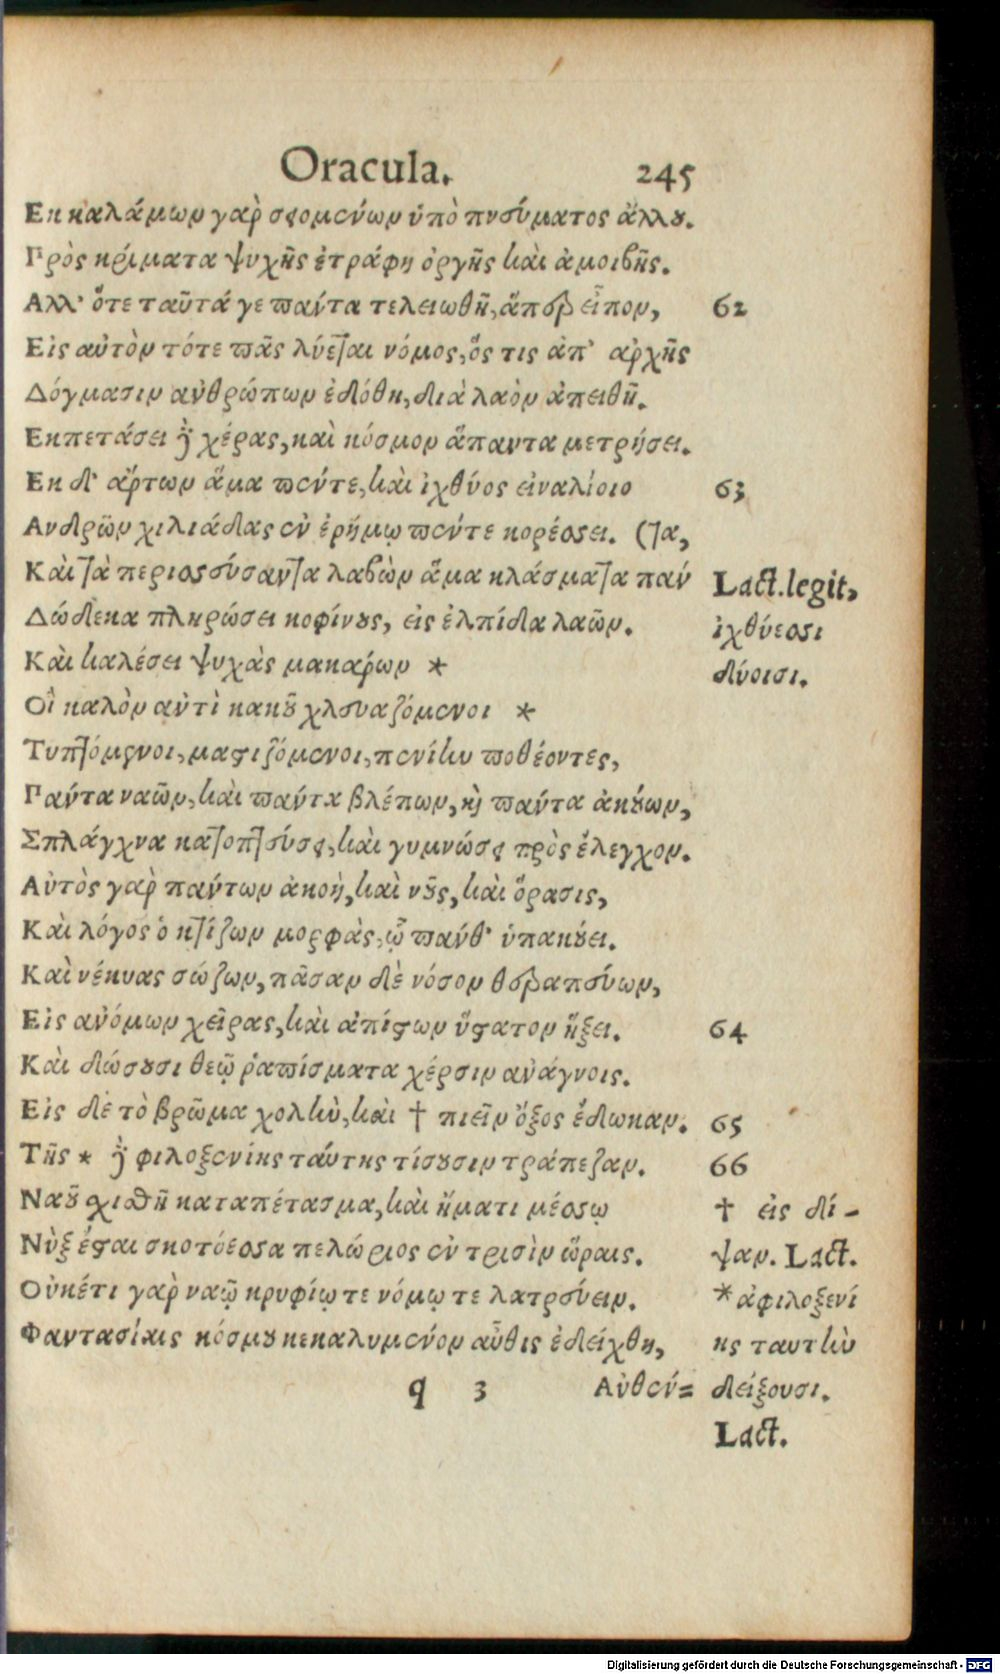 Oracula. 245
Εκ καλάμων γαρ σεομένων ὑπὸ πνεύματος ἄλλου.
Πρὸς κρίματα ψυχῆς ἐτράφη ὀργῆς καὶ ἀμοιβῆς.
Αλλ' ὅτε ταῦτά γε πάντα τελειωθῆ, ἅπερ εἶπον, 62
Εἰς αὐτὸν τότε πᾶς λύεται νόμος, ὅς τις ἀπ' αρχῆς
Δόγμασιν ανθρώπων ἐδόθη, διὰ λαὸν ἀπειθῆ.
Εκπετάσει δὲ χέρας, καὶ κόσμον ἅπαντα μετρήσει.
Εκ δ' ἄρτων ἅμα πέντε, καὶ ἰχθύος εἰναλίοιο 63
Ανδρῶν χιλιάδας ἐν ἐρήμῳ πέντε κορέσσει. (τα,
Καὶ τὰ περισσεύσαντα λαβὼν ἅμα κλάσματα πάν
Δώδεκα πληρώσει κοφίνους, εἰς ἐλπίδα λαῶν.
Καὶ καλέσει ψυχὰς μακάρων *
Οἳ καλὸν αντὶ κακοῦ χλευαζόμενοι *
Τυπτόμενοι, μαστιζόμενοι, πενίην ποθέοντες,
Πάντα ναῶν, καὶ πάντα βλέπων, καὶ πάντα ἀκούων,
Σπλάγχνα κατοπτεύσει, καὶ γυμνώσει πρὸς ἔλεγχον.
Αὐτὸς γαρ πάντων ἀκοὴ, καὶ νοῦς, καὶ ὅρασις,
Καὶ λόγος ὁ κτίζων μορφὰς, ᾧ πάνθ' ὑπακούει.
Καὶ νέκυας σώζων, πᾶσαν δὲ νόσον θεραπεύων,
Εἰς ανόμων χεῖρας, καὶ απίστων ὕστατον ἥξει. 64
Καὶ δώσουσι θεῷ ῥαπίσματα χέρσιν ανάγνοις.
Εἰς δὲ τὸ βρῶμα χολὴν, καὶ † πιεῖν ὄξος ἔδωκαν. 65
Τῆς * δὲ φιλοξενίης ταύτης τίσουσιν τράπεζαν. 66
Ναοῦ σχισθῆ καταπέτασμα, καὶ ἤματι μέσσῳ
Νὺξ ἔσται σκοτόεσσα πελώριος ἐν τρισὶν ὥραις.
Οὐκέτι γαρ ναῷ κρυφίῳ τε νόμῳ τε λατρεύειν.
Φαντασίαις κόσμου κεκαλυμένον αὖθις ἐδείχθη,
q 3 Αὐθέν=
Lact. legit,
ἰχθύεσσι
δύοισι.
† εἰς δί-
ψαν. Lact.
* ἀφιλοξενί
ης ταυτὴν
δείξουσι.
Lact.
Digitalisierung gefördert durch die Deutsche Forschungsgemeinschaft - DFG